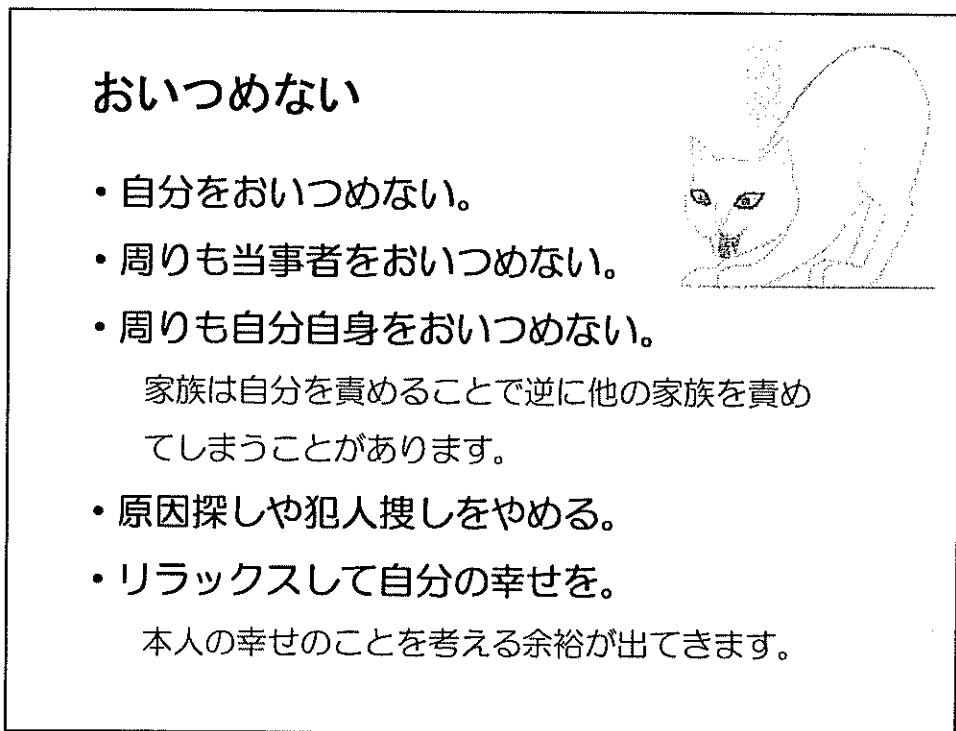 おいつめない
・自分をおいつめない。
・周りも当事者をおいつめない。
・周りも自分自身をおいつめない。
家族は自分を責めることで逆に他の家族を責め
てしまうことがあります。
・原因探しや犯人捜しをやめる。
・リラックスして自分の幸せを。
本人の幸せのことを考える余裕が出てきます。